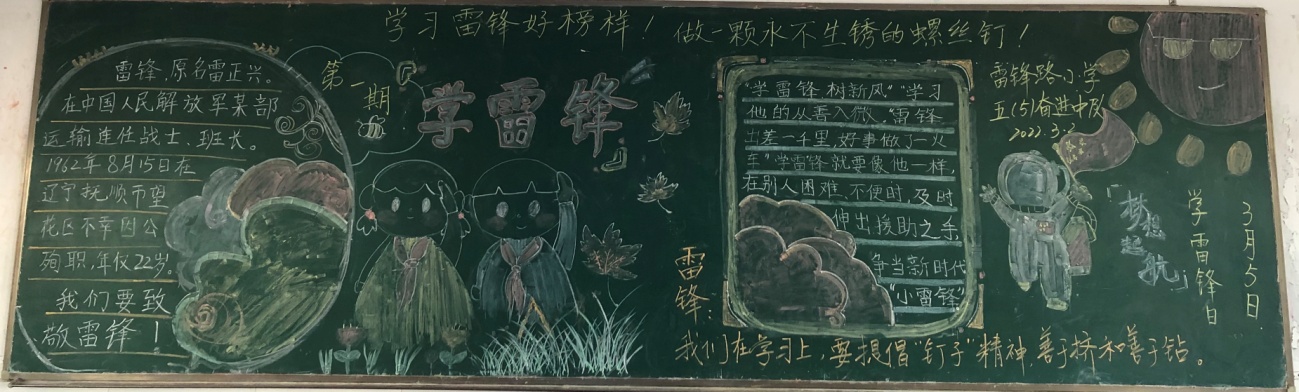 学习雷锋好榜样！做一颗永不生锈的螺丝钉！
雷锋，原名雷正兴。
在中国人民解放军某部
运输连任战士、班长。
1962年8月15日在
辽宁抚顺市望
花区不幸因公
殉职，年仅22岁。
我们要致
敬雷锋！
第一期
学雷锋
"学雷锋 树新风" "学习
他的从善入微，"雷锋
出差一千里，好事做了一火
车"学雷锋就要像他一样，
在别人困难、不便时，及时
伸出援助之手，
争当新时代
"小雷锋"
雷锋：
我们在学习上，要提倡"钉子"精神 善于挤和善于钻。
雷锋路小学
五(5)奋进中队
2022.3.2
「梦想起航」
学雷锋日
3月5日